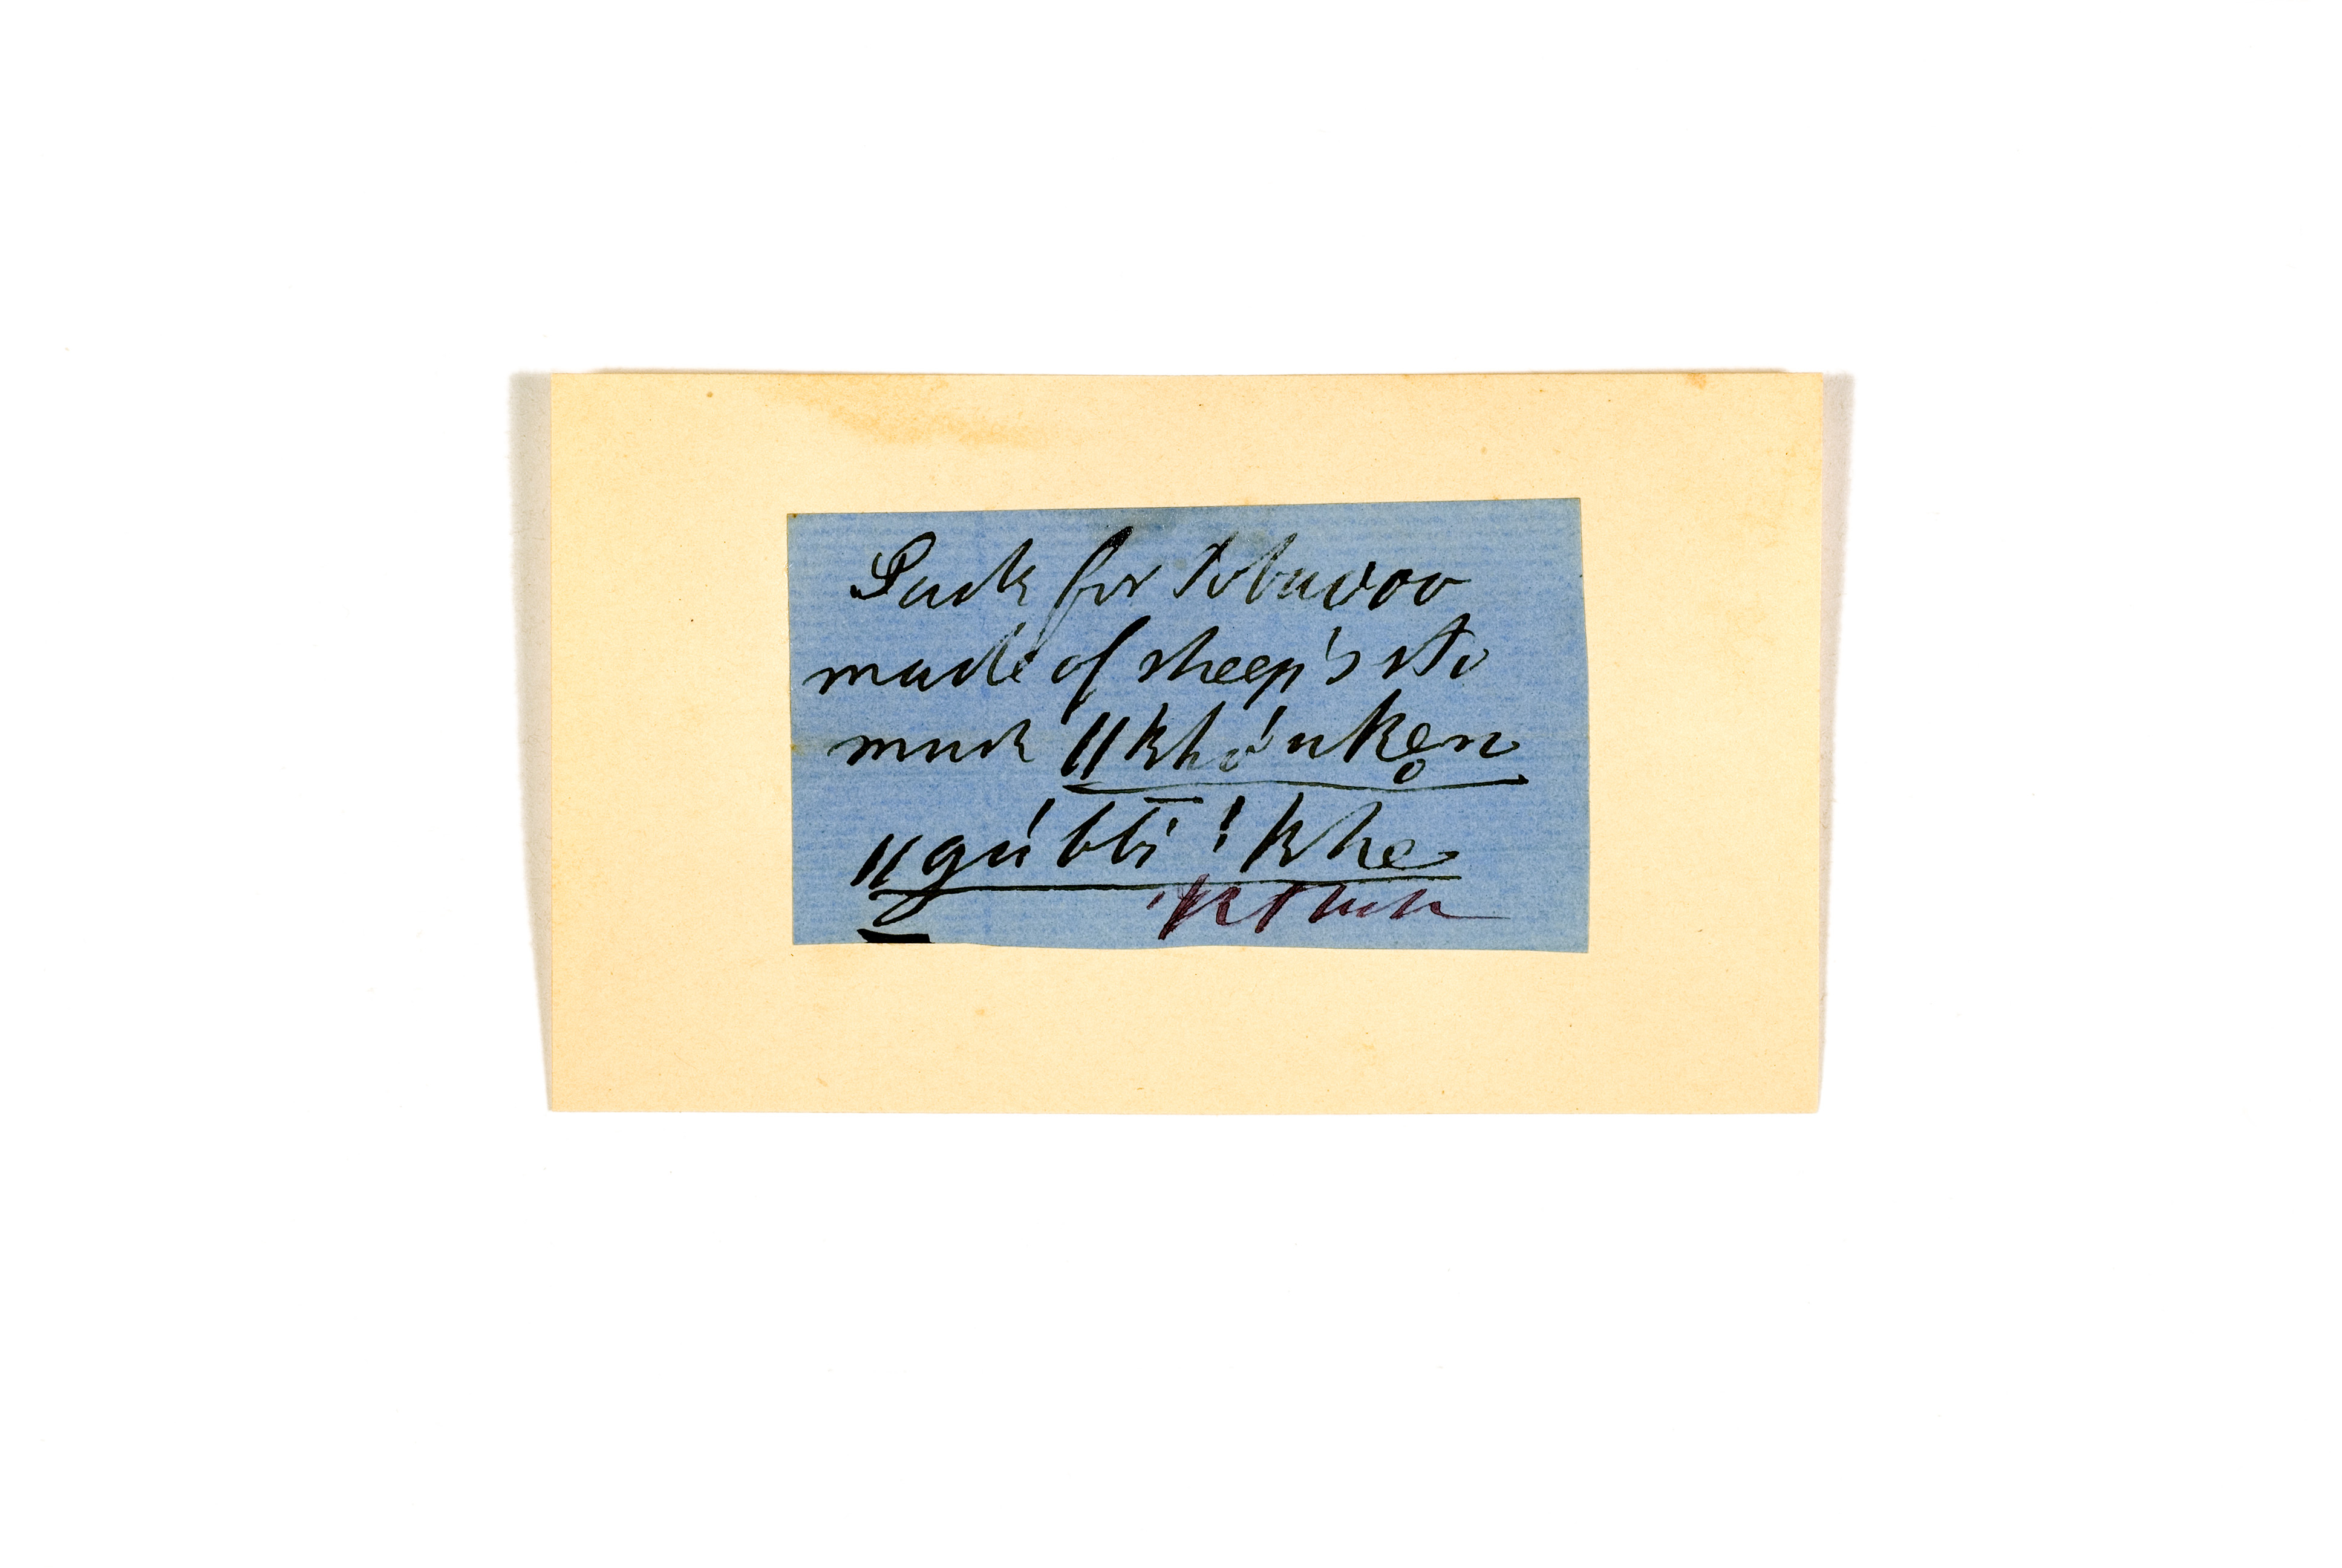 Sack for Tobacco
made of sheep's sto
mach ǁkhó̤uken̥
ǁgúbbī !khe